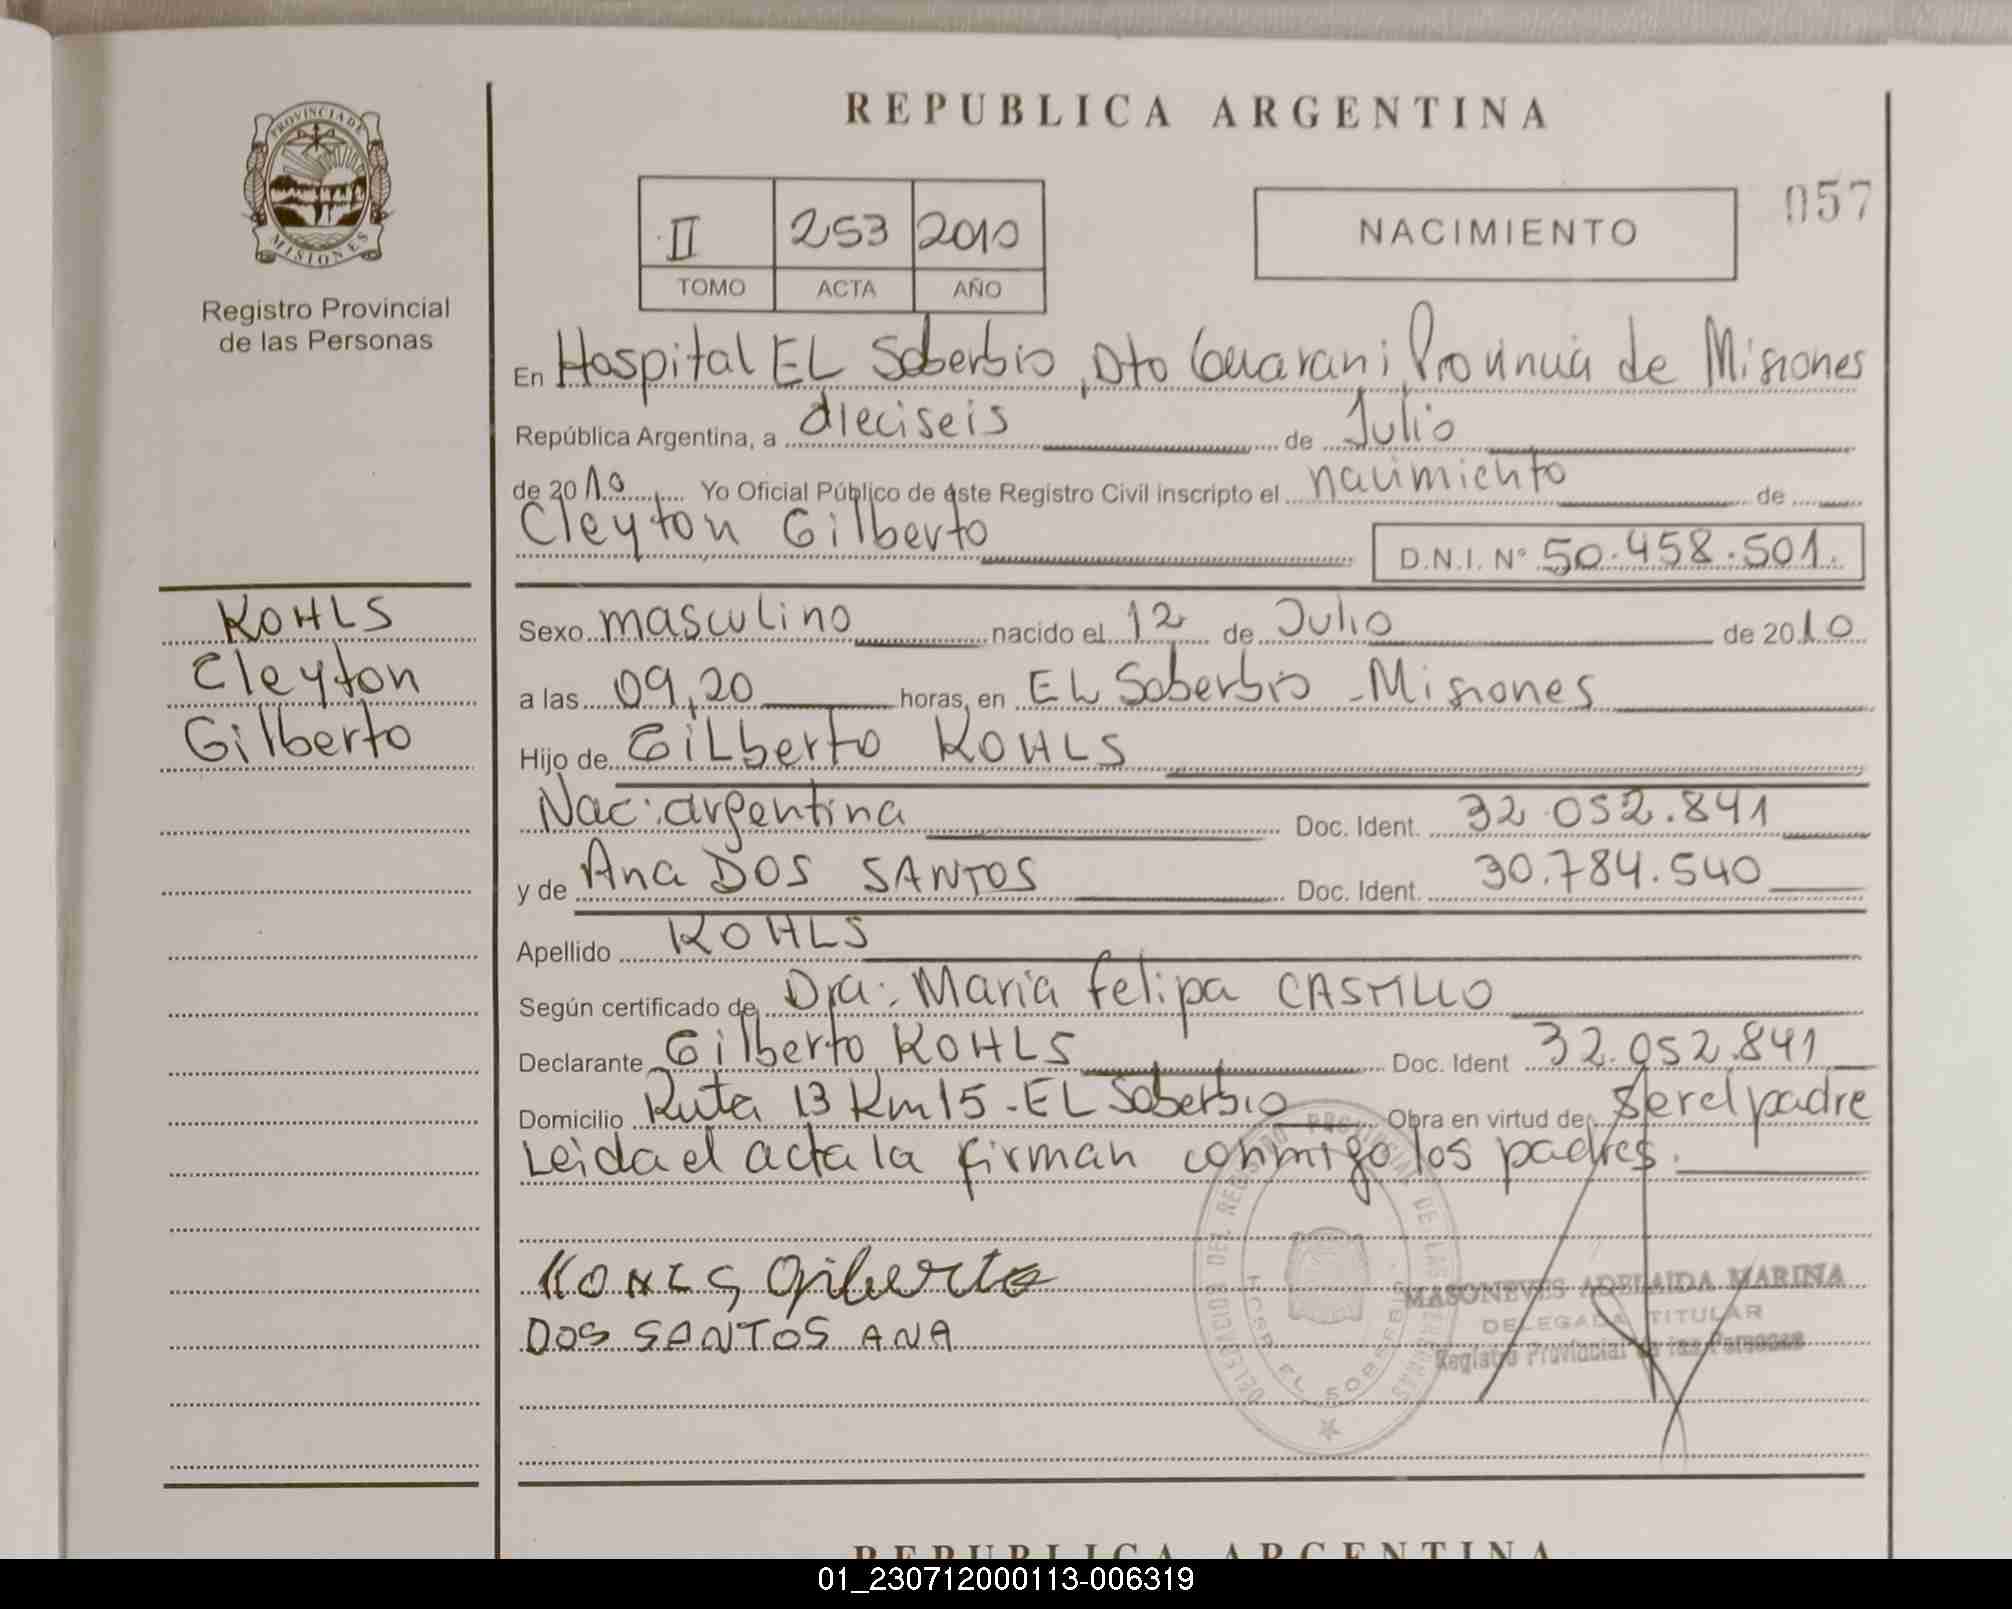 REPUBLICA ARGENTINA
PROVINCIA DE MISIONES
Registro Provincial
de las Personas
II 253 2010
TOMO ACTA AÑO
NACIMIENTO
057
En Hospital EL Soberbio, Dto Guarani, Provincia de Misiones
República Argentina, a dieciseis de Julio
de 2010 Yo Oficial Público de éste Registro Civil inscripto el nacimiento de
Cleyton Gilberto D.N.I. Nº 50.458.501.
KOHLS
Cleyton
Gilberto
Sexo masculino nacido el 12 de Julio de 2010
a las 09,20 horas, en EL Soberbio - Misiones
Hijo de Gilberto KOHLS
Nac: argentina Doc. Ident. 32.052.841
y de Ana DOS SANTOS Doc. Ident. 30.784.540
Apellido KOHLS
Según certificado de Dra: Maria Felipa CASTILLO
Declarante Gilberto KOHLS Doc. Ident 32.052.841
Domicilio Ruta 13 Km 15 - EL Soberbio Obra en virtud de ser el padre
Leida el acta la firman conmigo los padres.
KOHLS Gilberto
DOS SANTOS ANA
MASONEVES ADELAIDA MARINA
DELEGADA TITULAR
Registro Provincial de las Personas
DEL REGISTRO PROVINCIAL DE LAS PERSONAS
EL SOBERBIO
REPUBLICA ARGENTINA
01_230712000113-006319